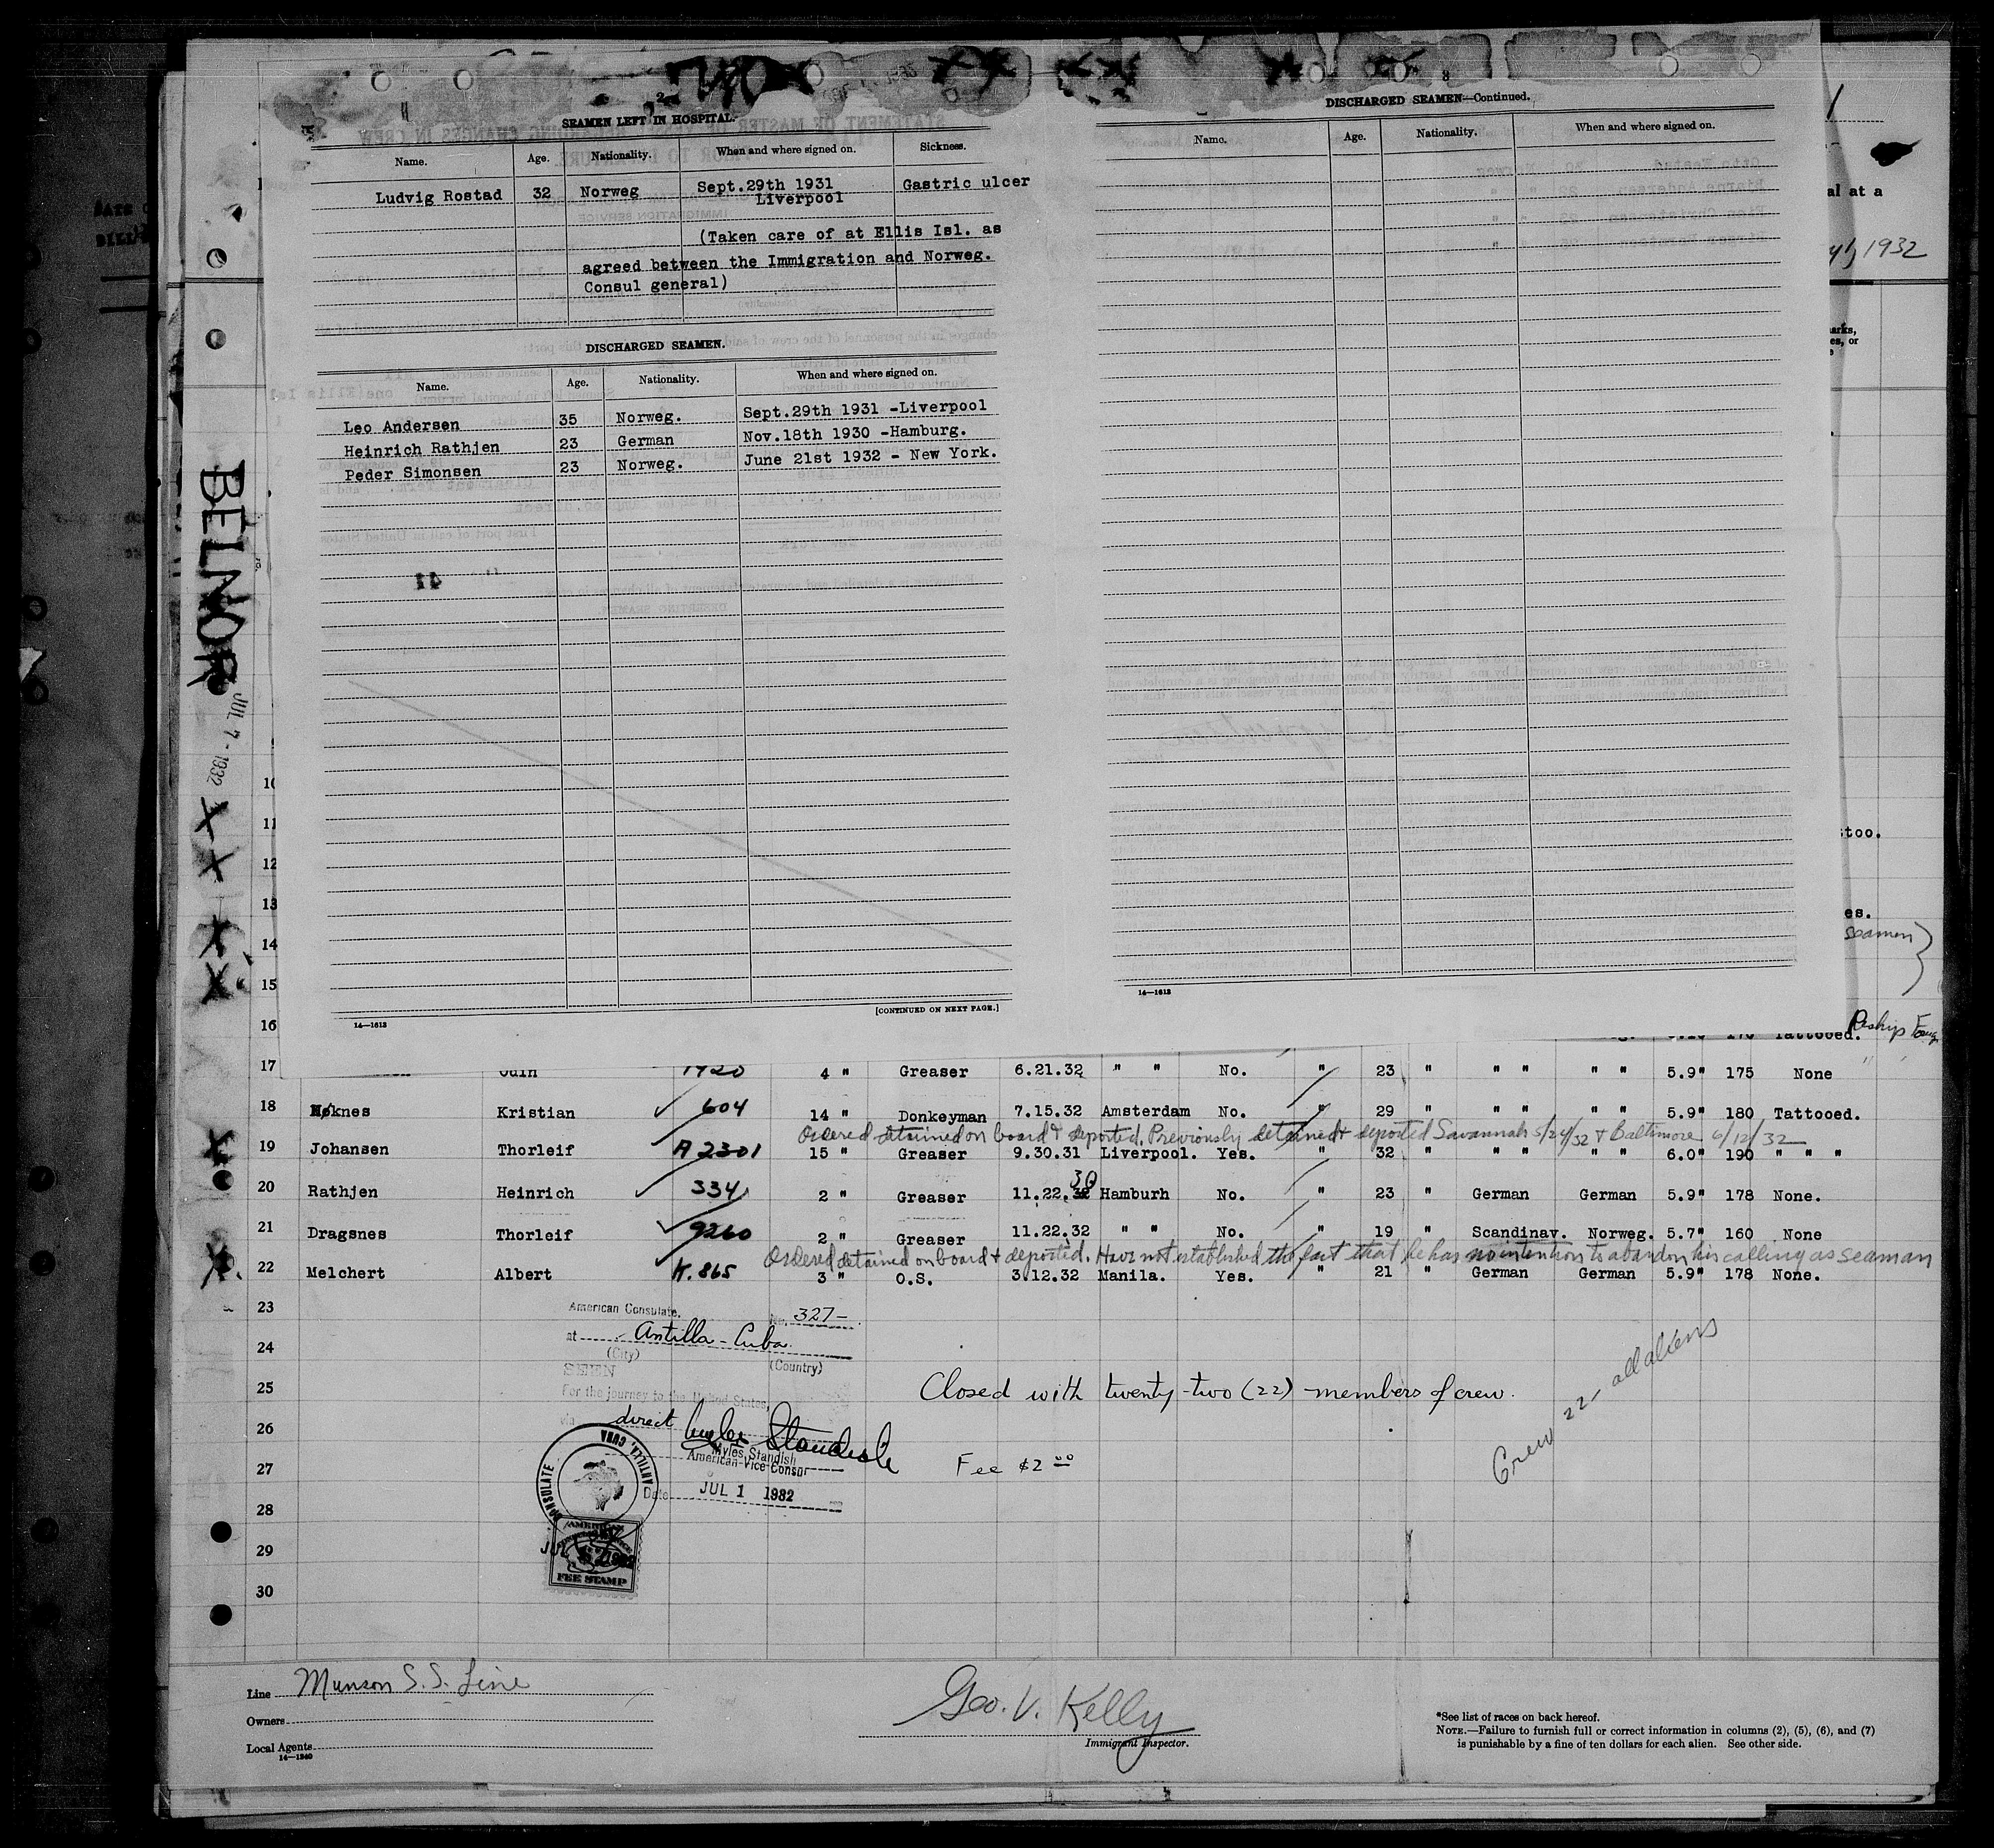 2
SEAMEN LEFT IN HOSPITAL.
Name. Age. Nationality. When and where signed on. Sickness.
Ludvig Rostad 32 Norweg Sept.29th 1931 Gastric ulcer
Liverpool
(Taken care of at Ellis Isl. as
agreed between the Immigration and Norweg.
Consul general)
DISCHARGED SEAMEN.
Name. Age. Nationality. When and where signed on.
Leo Andersen 35 Norweg. Sept.29th 1931 -Liverpool
Heinrich Rathjen 23 German Nov.18th 1930 -Hamburg.
Peder Simonsen 23 Norweg. June 21st 1932 - New York.
14—1613
[CONTINUED ON NEXT PAGE.]
3
DISCHARGED SEAMEN—Continued.
Name. Age. Nationality. When and where signed on.
14—1613
al at a
1932
arks,
es, or
e
too.
es.
seamen
BELNOR
JUL 7 - 1932
10
11
12
13
14
15
16 Tattooed.
17 Odin 1920 4 " Greaser 6.21.32 " " No. " 23 " " " " " 5.9" 175 None
18 Høknes Kristian 604 14 " Donkeyman 7.15.32 Amsterdam No. " 29 " " " " " 5.9" 180 Tattooed.
Ordered detained on board & deported. Previously detained & deported Savannah 5/24/32 & Baltimore 6/12/32
19 Johansen Thorleif A 2301 15 " Greaser 9.30.31 Liverpool. Yes. " 32 " " " " " 6.0" 190 " " "
20 Rathjen Heinrich 334 2 " Greaser 11.22.32 30 Hamburh No. " 23 " German German 5.9" 178 None.
21 Dragsnes Thorleif 9260 2 " Greaser 11.22.32 " " No. " 19 " Scandinav. Norweg. 5.7" 160 None
Ordered detained on board & deported. Have not established the fact that he has no intention to abandon his calling as seaman
22 Melchert Albert K.865 3 " O.S. 3.12.32 Manila. Yes. " 21 " German German 5.9" 178 None.
23
24
25
26
27
28
29
30
American Consulate.
No. 327-
at Antilla - Cuba.
(City) (Country)
SEEN
For the journey to the United States,
via direct
Myles Standish
Myles Standish
American Vice Consul
Date JUL 1 1932
CONSULATE
ANTILLA, CUBA
AMERICAN
FEE STAMP
Closed with twenty-two (22) members of crew.
Fee $2 00
Crew 22 - all aliens
Line Munson S.S. Line
Owners
Local Agents
14—1240
Geo. V. Kelly
Immigrant Inspector.
*See list of races on back hereof.
NOTE.—Failure to furnish full or correct information in columns (2), (5), (6), and (7)
is punishable by a fine of ten dollars for each alien. See other side.